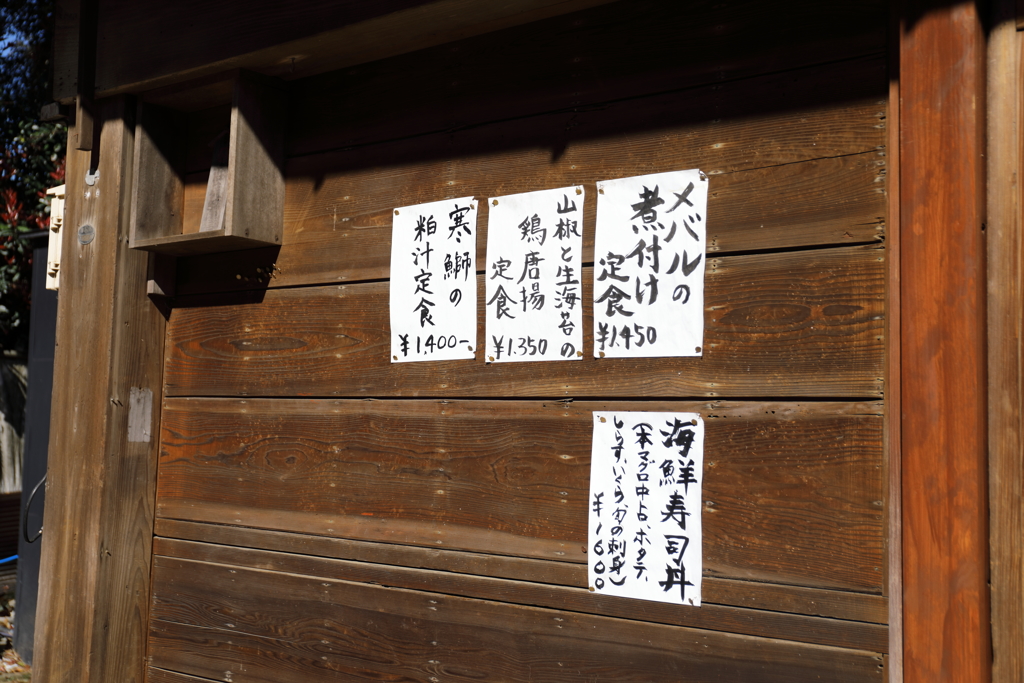 メバルの
煮付け
定食
¥1,450
山椒と生海苔の
鶏唐揚
定食
¥1.350
寒鰤の
粕汁定食
¥1,400-
海鮮寿司丼
(本マグロ中トロ、ホタテ、
しらす、いくら、旬の刺身)
¥1600